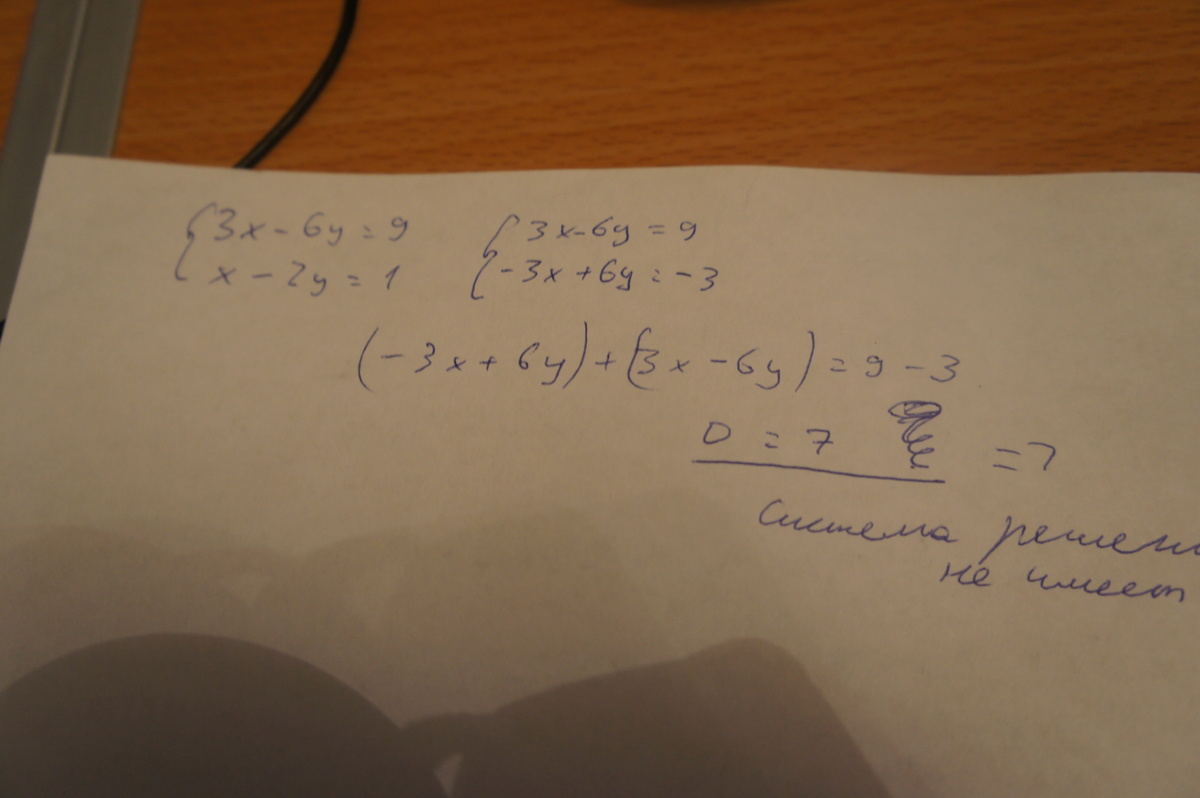 {3x - 6y = 9 {3x - 6y = 9
x - 2y = 1 -3x + 6y = -3
(-3x + 6y) + (3x - 6y) = 9 - 3
0 = 7 =>
система решени
не имеет